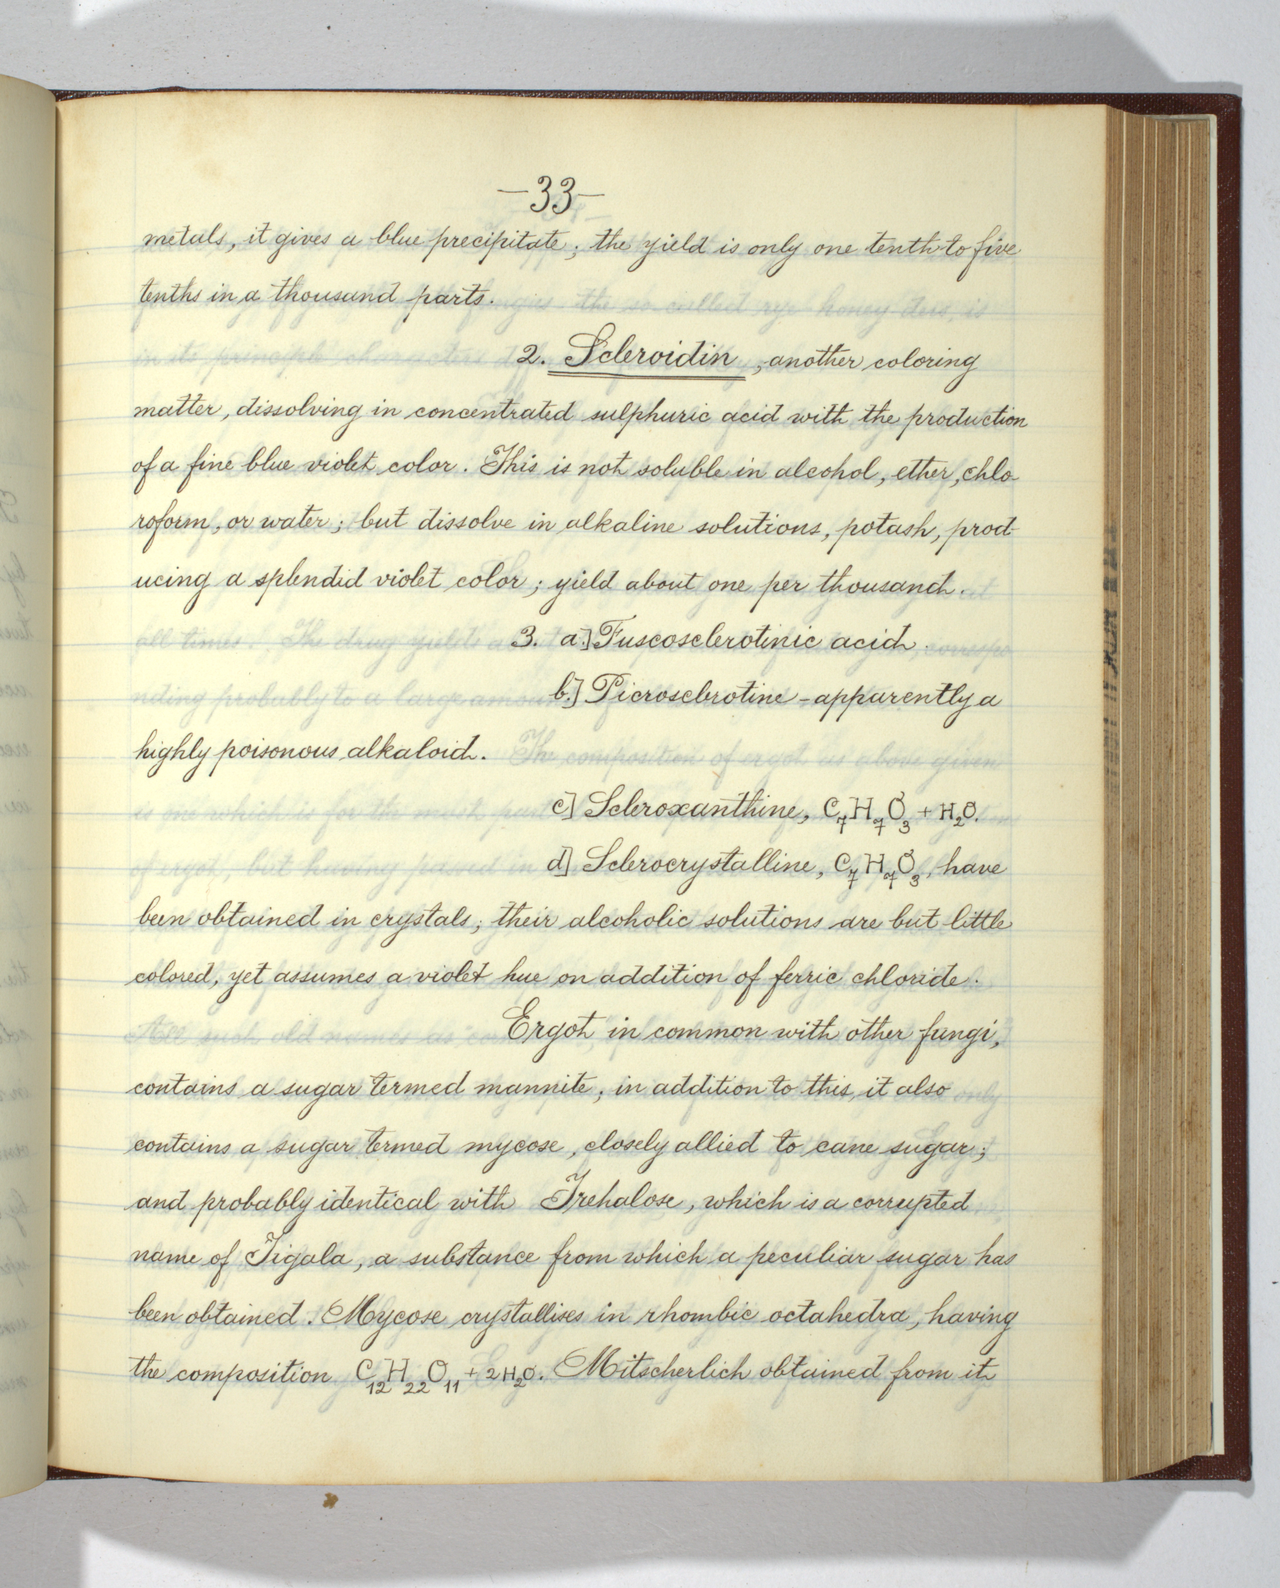 —33—
metals, it gives a blue precipitate; the yield is only one tenth to five
tenths in a thousand parts.
2. Scleroidin, another coloring
matter, dissolving in concentrated sulphuric acid with the production
of a fine blue violet color. This is not soluble in alcohol, ether, chlo-
roform, or water; but dissolve in alkaline solutions, potash, prod-
ucing a splendid violet color; yield about one per thousand.
3. a.] Fuscosclerotinic acid.
b.] Picrosclerotine - apparently a
highly poisonous alkaloid.
c] Scleroxanthine, C₇H₇O₃ + H₂O.
d] Sclerocrystalline, C₇H₇O₃, have
been obtained in crystals; their alcoholic solutions are but little
colored, yet assumes a violet hue on addition of ferric chloride.
Ergot in common with other fungi,
contains a sugar termed mannite, in addition to this, it also
contains a sugar termed mycose, closely allied to cane sugar;
and probably identical with Trehalose, which is a corrupted
name of Tigala, a substance from which a peculiar sugar has
been obtained. Mycose crystallises in rhombic octahedra, having
the composition C₁₂H₂₂O₁₁ + 2H₂O. Mitscherlich obtained from it